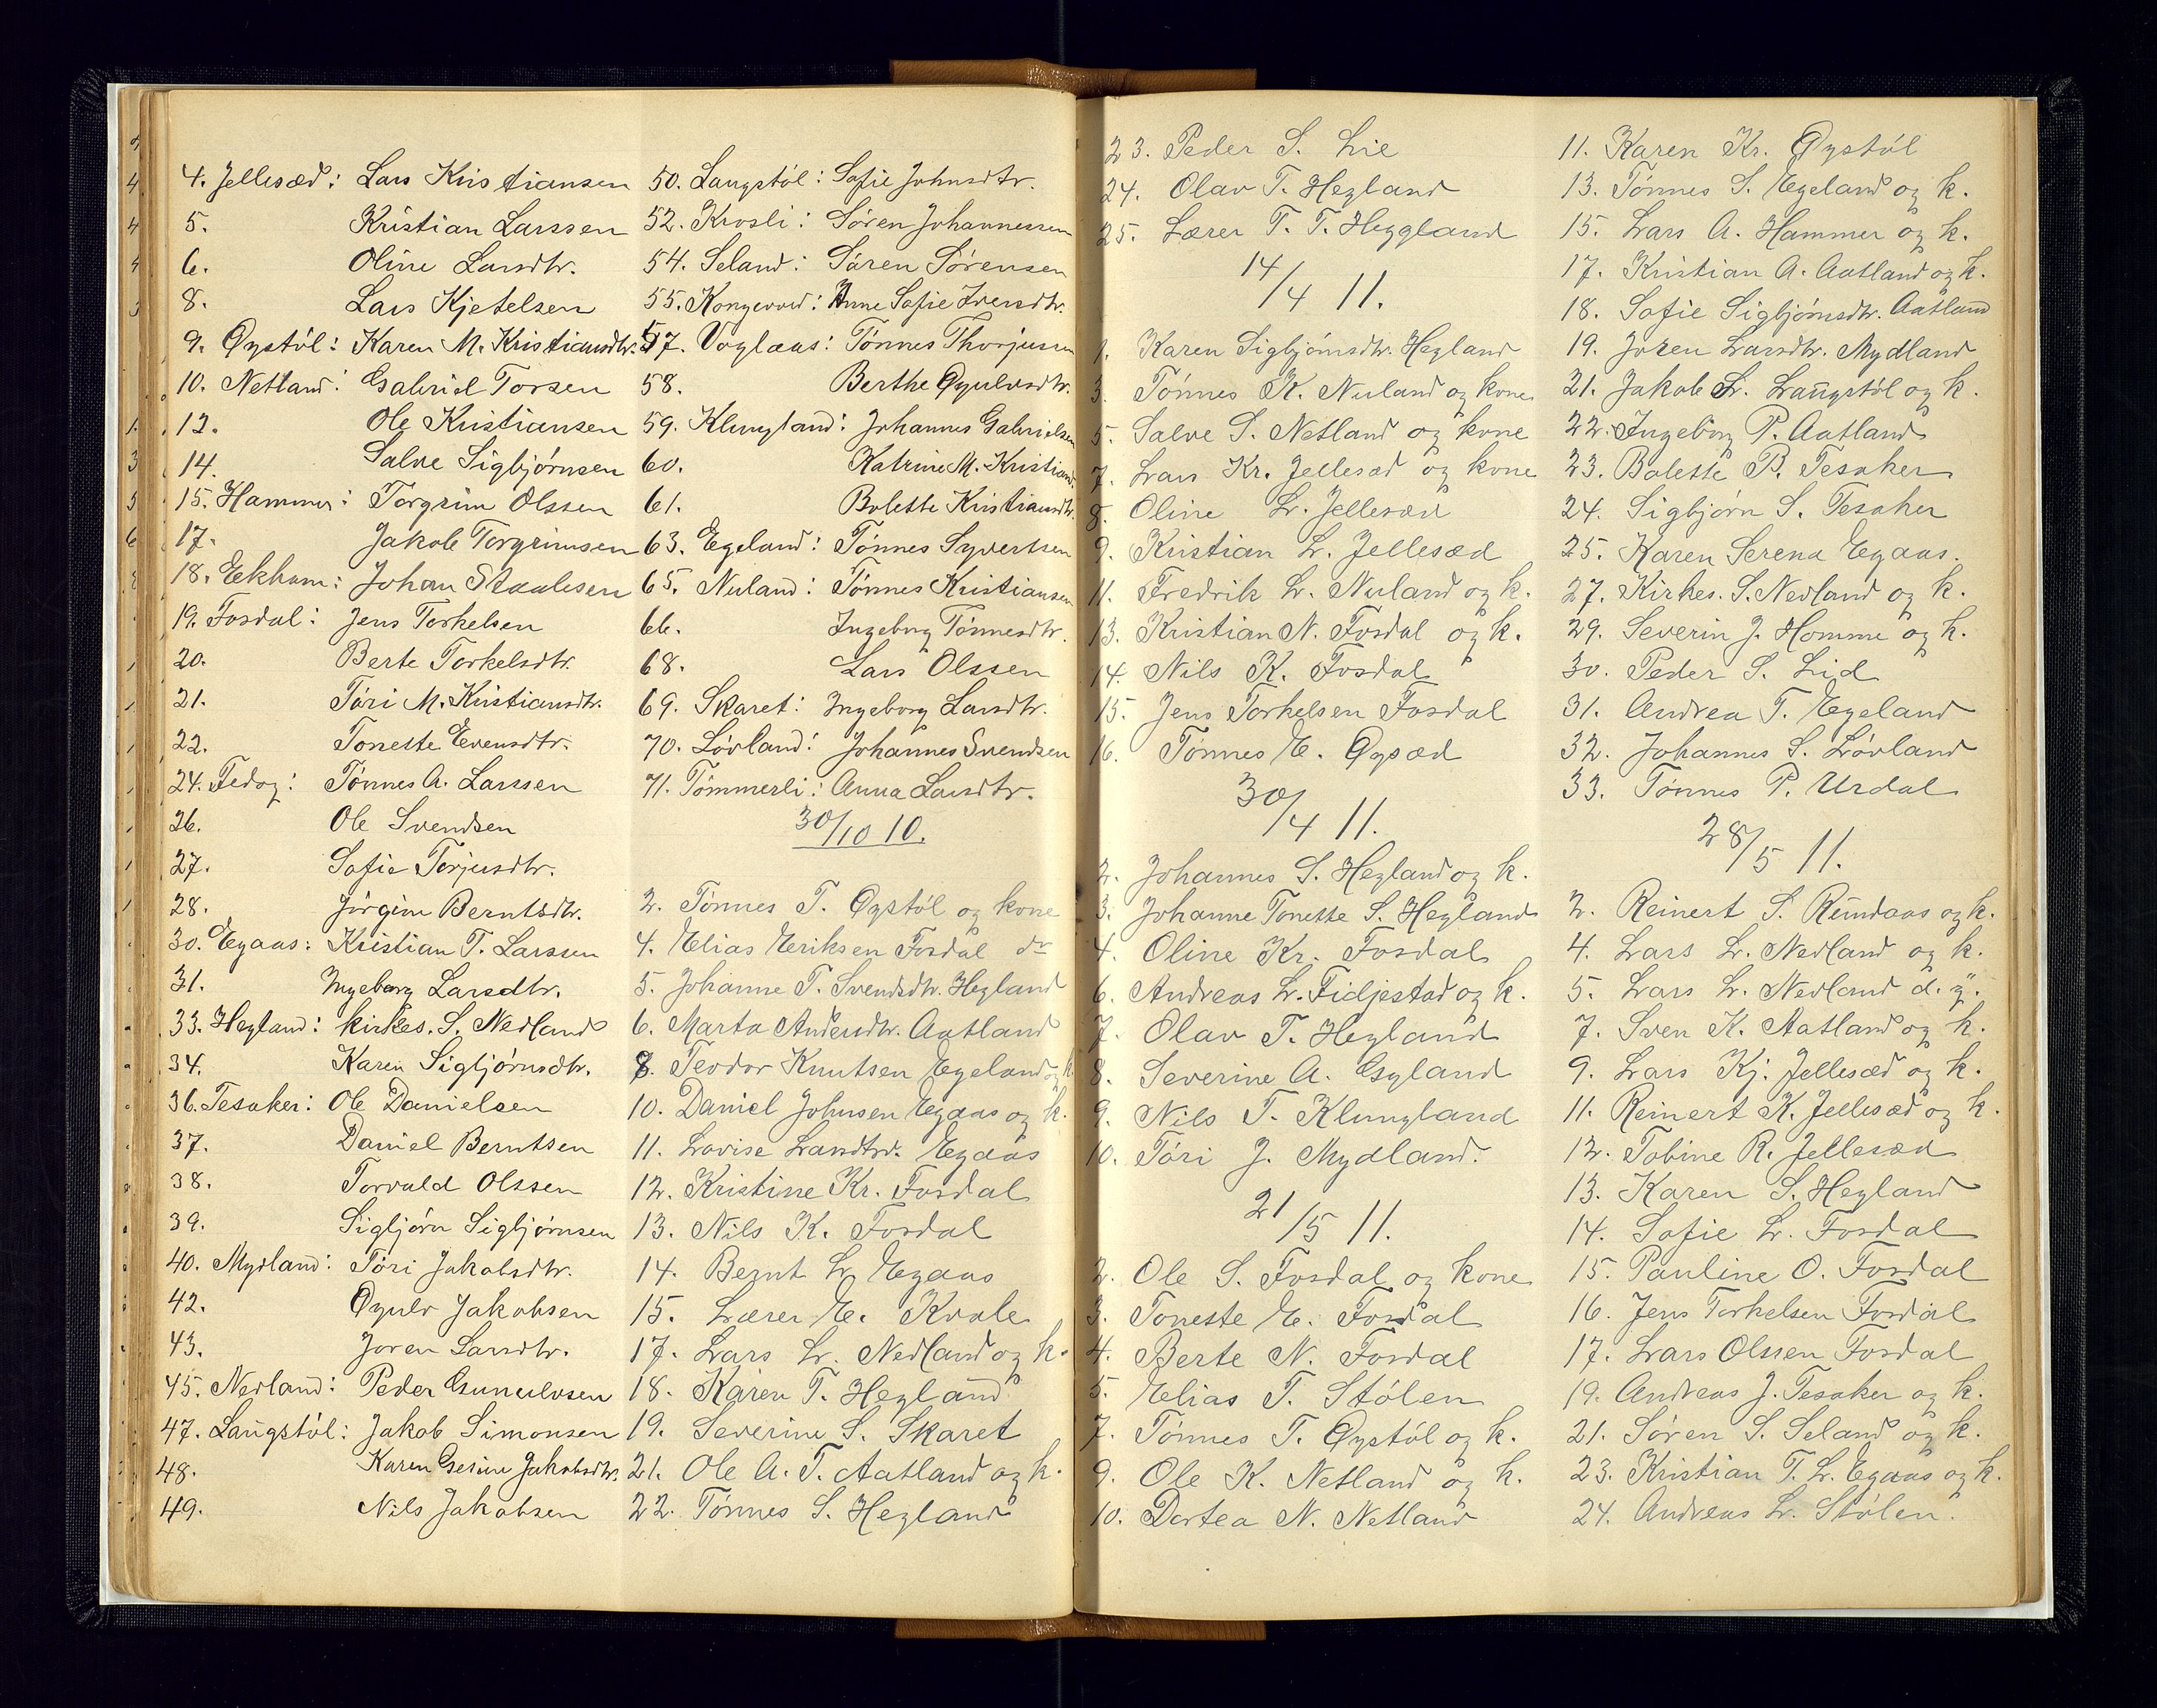 4. Jellesæd: Lars Kristiansen
5. Kristian Larssen
6. Oline Larsdtr.
8. Lars Kjetelsen
9. Øystöl: Karen M. Kristiansdtr.
10. Netland: Gabriel Torsen
12. Ole Kristiansen
14. Salve Sigbjørnsen
15. Hammer: Torgrim Olssen
17. Jakob Torgrimsen
18. Eikham: Johan Staalesen
19. Fosdal: Jens Torkelsen
20. Berte Torkelsdtr.
21. Töri M. Kristiansdtr.
22. Toneste Evensdtr.
24. Fedog: Tönnes A. Larssen
26. Ole Svendsen
27. Sofie Torjusdtr.
28. Jörgine Berntsdtr.
30. Egaas: Kristian T. Larssen
31. Ingeborg Larsdtr.
33. Hegland: kirkes. S. Nedland
34. Karen Sigbjörnsdtr.
36. Tesaker: Ole Danielsen
37. Daniel Berntsen
38. Torvald Olssen
39. Sigbjörn Sigbjörnsen
40. Mydland: Töri Jakobsdtr.
42. Øyulv Jakobsen
43. Joren Larsdtr.
45. Nedland: Peder Gunulvsen
47. Laugstöl: Jakob Simonsen
48. Karen Gesine Jakobsdtr.
49. Nils Jakobsen
50. Laugstöl: Sofie Johnsdtr.
52. Krosli: Sören Johannessen
54. Seland: Sören Sörensen
55. Kongevold: Anne Sofie Iversdtr.
57. Voglaas: Tönnes Thorjussen
58. Berthe Øyulvsdtr.
59. Klungland: Johannes Gabrielsen
60. Katrine M. Kristiansd.
61. Bolette Kristiansdtr.
63. Egeland: Tönnes Syvertsen
65. Nuland: Tönnes Kristiansen
66. Ingeborg Tönnesdtr.
68. Lars Olssen
69. Skaret: Ingeborg Larsdtr.
70. Lövland: Johannes Svendsen
71. Tömmerli: Anna Larsdtr.
30/10 10.
2. Tönnes T. Øystöl og kone
4. Elias Eriksen Fosdal do
5. Johanne T. Svendsdtr. Hegland
6. Marta Andersdtr. Aatland
8. Teodor Knutsen Egeland og k.
10. Daniel Johnsen Egaas og k.
11. Lovise Larsdtr. Egaas
12. Kristine Kr. Fosdal
13. Nils K. Fosdal
14. Bernt L. Egaas
15. Lærer E. Kvale
17. Lars L. Nedland og k.
18. Karen T. Hegland
19. Severine S. Skaret
21. Ole A. T. Aatland og k.
22. Tönnes S. Hegland
23. Peder S. Lie
24. Olav T. Hegland
25. Lærer T. T. Heggland
14/4 11.
1. Karen Sigbjörnsdtr. Hegland
3. Tönnes K. Nuland og kone
5. Salve S. Netland og kone
7. Lars Kr. Jellesæd og kone
8. Oline L. Jellesæd
9. Kristian L. Jellesæd
11. Fredrik L. Nuland og k.
13. Kristian N. Fosdal og k.
14. Nils K. Fosdal
15. Jens Torkelsen Fosdal
16. Tönnes E. Øysæd
30/4 11.
2. Johannes S. Hegland og k.
3. Johanne Tonette S. Hegland
4. Oline Kr. Fosdal
6. Andreas L. Fidjestad og k.
7. Olav T. Hegland
8. Severine A. Gyland
9. Nils T. Klungland
10. Töri J. Mydland.
21/5 11.
2. Ole S. Fosdal og kone
3. Toneste E. Fosdal
4. Berte N. Fosdal
5. Elias T. Stölen
7. Tönnes T. Øystöl og k.
9. Ole K. Netland og k.
10. Dortea N. Netland
11. Karen Kr. Øystöl
13. Tönnes S. Egeland og k.
15. Lars A. Hammer og k.
17. Kristian A. Aatland og k.
18. Sofie Sigbjörnsdtr. Aatland
19. Joren Larsdtr. Mydland
21. Jakob S. Laugstöl og k.
22. Ingeborg P. Aatland
23. Bolette B. Tesaker
24. Sigbjörn S. Tesaker
25. Karen Serena Egaas.
27. Kirkes. S. Nedland og k.
29. Severin J. Homme og k.
30. Peder S. Lid
31. Andrea T. Egeland
32. Johannes S. Lövland
33. Tönnes P. Urdal
28/5 11.
2. Reinert S. Rundaas og k.
4. Lars L. Nedland og k.
5. Lars L. Nedland d. y.
7. Sven K. Aatland og k.
9. Lars Kj. Jellesæd og k.
11. Reinert K. Jellesæd og k.
12. Tobine R. Jellesæd
13. Karen S. Hegland
14. Sofie L. Fosdal
15. Pauline O. Fosdal
16. Jens Torkelsen Fosdal
17. Lars Olssen Fosdal
19. Andreas J. Tesaker og k.
21. Sören S. Seland og k.
23. Kristian T. L. Egaas og k.
24. Andreas L. Stölen.